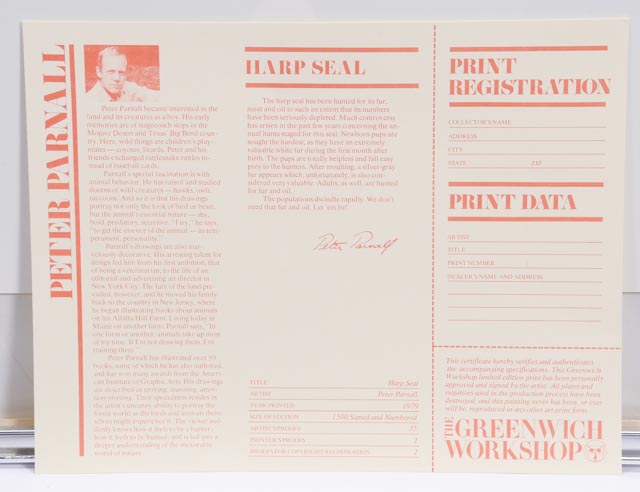 PETER PARNALL
Peter Parnall became interested in the
land and its creatures as a boy. His early
memories are of stagecoach stops in the
Mojave Desert and Texas' Big Bend coun-
try. Here, wild things are children's play-
mates — coyotes, lizards. Peter and his
friends exchanged rattlesnake rattles in-
stead of baseball cards.
Parnall's special fascination is with
animal behavior. He has raised and studied
dozens of wild creatures — hawks, owls,
raccoons. And so it is that his drawings
portray not only the look of bird or beast,
but the animal's essential nature — shy,
bold, predatory, secretive. "I try," he says,
"to get the essence of the animal — its tem-
perament, personality."
Parnall's drawings are also mar-
velously decorative. His arresting talent for
design led him from his first ambition, that
of being a veterinarian, to the life of an
editorial and advertising art director in
New York City. The lure of the land pre-
vailed, however, and he moved his family
back to the country in New Jersey, where
he began illustrating books about animals
on his Alfalfa Hill Farm. Living today in
Maine on another farm, Parnall says, "In
one form or another, animals take up most
of my time. If I'm not drawing them, I'm
training them."
Peter Parnall has illustrated over 50
books, some of which he has also authored,
and has won many awards from the Ameri-
can Institute of Graphic Arts. His drawings
are described as striking, stunning, atten-
tion-riveting. Their specialness resides in
the artist's uncanny ability to portray the
forest world as the birds and animals them-
selves might experience it. The viewer sud-
denly knows how it feels to be a hunter,
how it feels to be hunted, and is led into a
deeper understanding of the inexorable
world of nature.
HARP SEAL
The harp seal has been hunted for its fur,
meat and oil to such an extent that its numbers
have been seriously depleted. Much controversy
has arisen in the past few years concerning the an-
nual hunts staged for this seal. Newborn pups are
sought the hardest, as they have an extremely
valuable white fur during the first month after
birth. The pups are totally helpless and fall easy
prey to the hunters. After moulting, a silver-gray
fur appears which, unfortunately, is also con-
sidered very valuable. Adults, as well, are hunted
for fur and oil.
The populations dwindle rapidly. We don't
need that fur and oil. Let 'em be!
Peter Parnall
TITLE Harp Seal
ARTIST Peter Parnall
YEAR PRINTED 1979
SIZE OF EDITION 1500 Signed and Numbered
ARTIST'S PROOFS 35
PRINTER'S PROOFS 2
PROOFS FOR COPYRIGHT REGISTRATION 2
PRINT
REGISTRATION
COLLECTOR'S NAME
ADDRESS
CITY
STATE ZIP
PRINT DATA
ARTIST
TITLE
PRINT NUMBER
DEALER'S NAME AND ADDRESS
This certificate hereby verifies and authenticates
the accompanying specifications. This Greenwich
Workshop limited edition print has been personally
approved and signed by the artist. All plates and
negatives used in the production process have been
destroyed, and this painting never has been, or ever
will be, reproduced in any other art print form.
THE GREENWICH
WORKSHOP